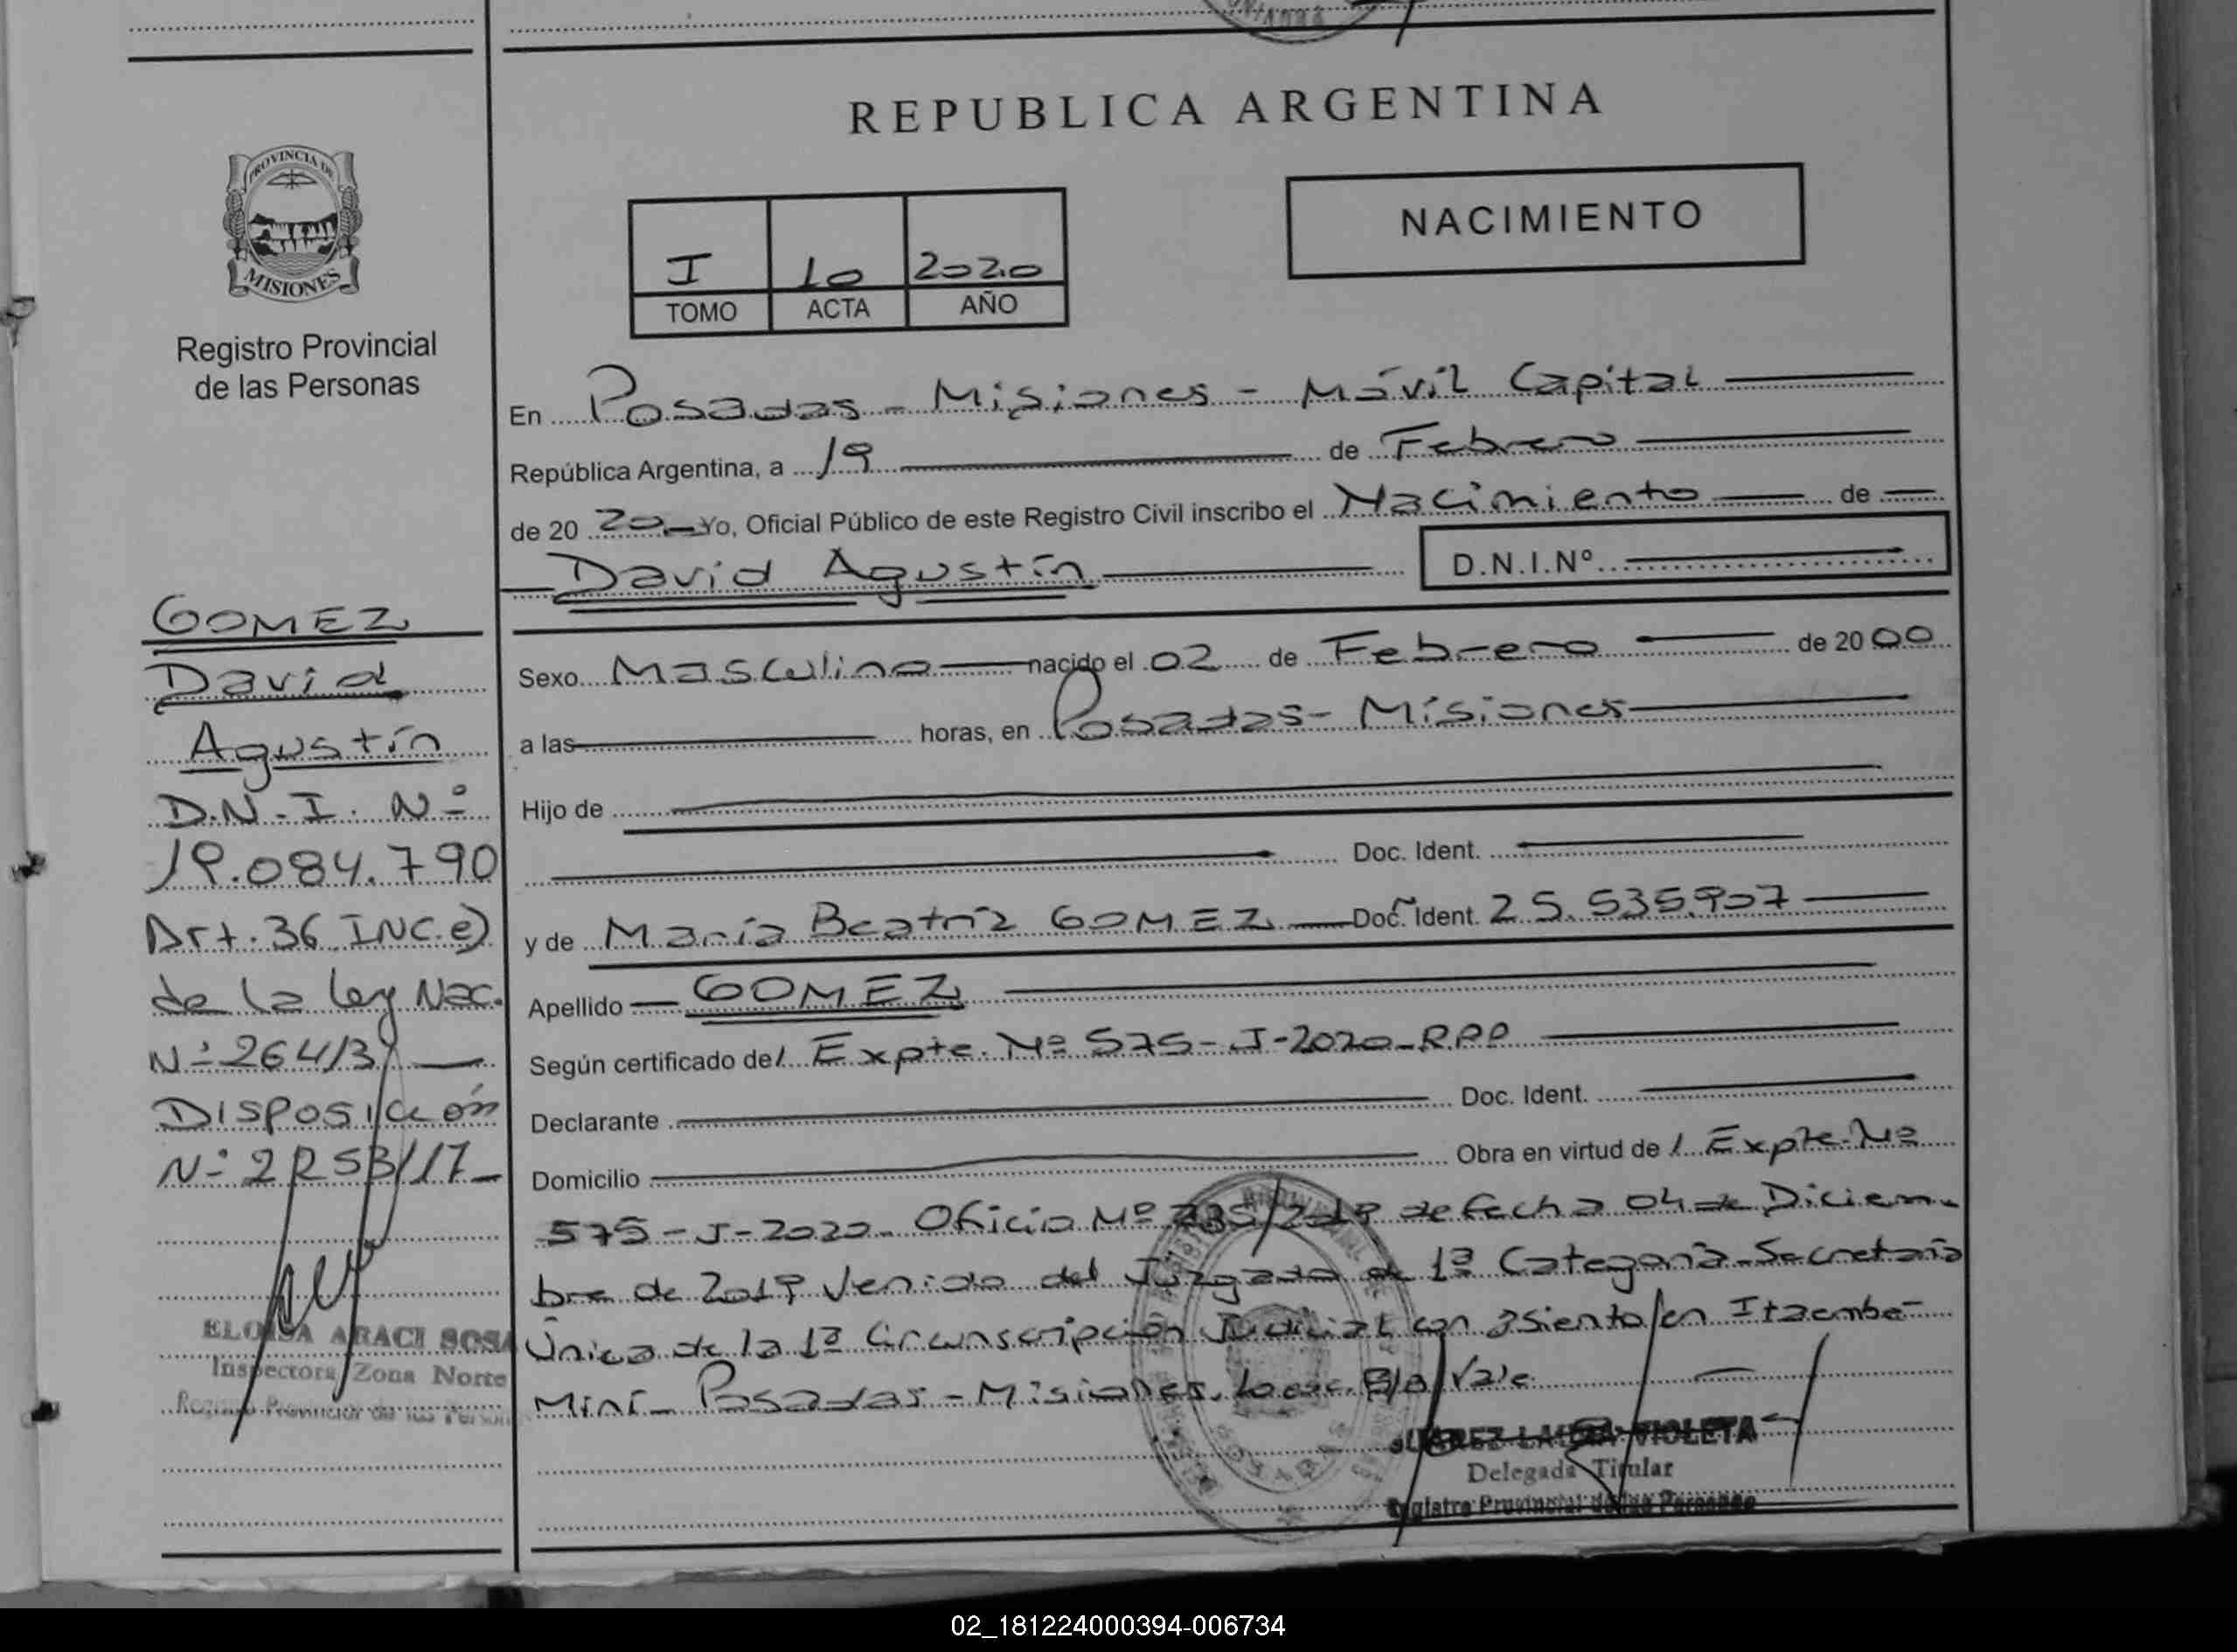 REPUBLICA ARGENTINA
PROVINCIA DE
MISIONES
Registro Provincial
de las Personas
NACIMIENTO
I 10 2020
TOMO ACTA AÑO
En Posadas - Misiones - Móvil Capital
República Argentina, a 19 de Febrero
de 20 20 Yo, Oficial Público de este Registro Civil inscribo el Nacimiento de
David Agustín D.N.I.Nº
Sexo Masculino nacido el 02 de Febrero de 20 00
a las horas, en Posadas - Misiones
Hijo de
Doc. Ident.
y de María Beatríz GOMEZ Doc. Ident. 25.535.907
Apellido GOMEZ
Según certificado del Expte. Nº 575-J-2020-RPP
Declarante Doc. Ident.
Domicilio Obra en virtud de Expte. Nº
575-J-2020. Oficio Nº de fecha 04 de Diciem-
bre de 2019 Venido del Juzgado de 1ª Categoría - Secretaría
Única de la 1ª Circunscripción Judicial con asiento en Itaembé
Miní - Posadas - Misiones. Vale
GOMEZ
David
Agustín
D.N.I. Nº
19.084.790
Art. 36 INC.e)
de la Ley Nac.
Nº 26413
DISPOSICIÓN
Nº
ELOISA ARACI SOSA
Inspectora Zona Norte
Registro Provincial de las Personas
SUAREZ LAURA VIOLETA
Delegada Titular
Registro Provincial de las Personas
02_181224000394-006734